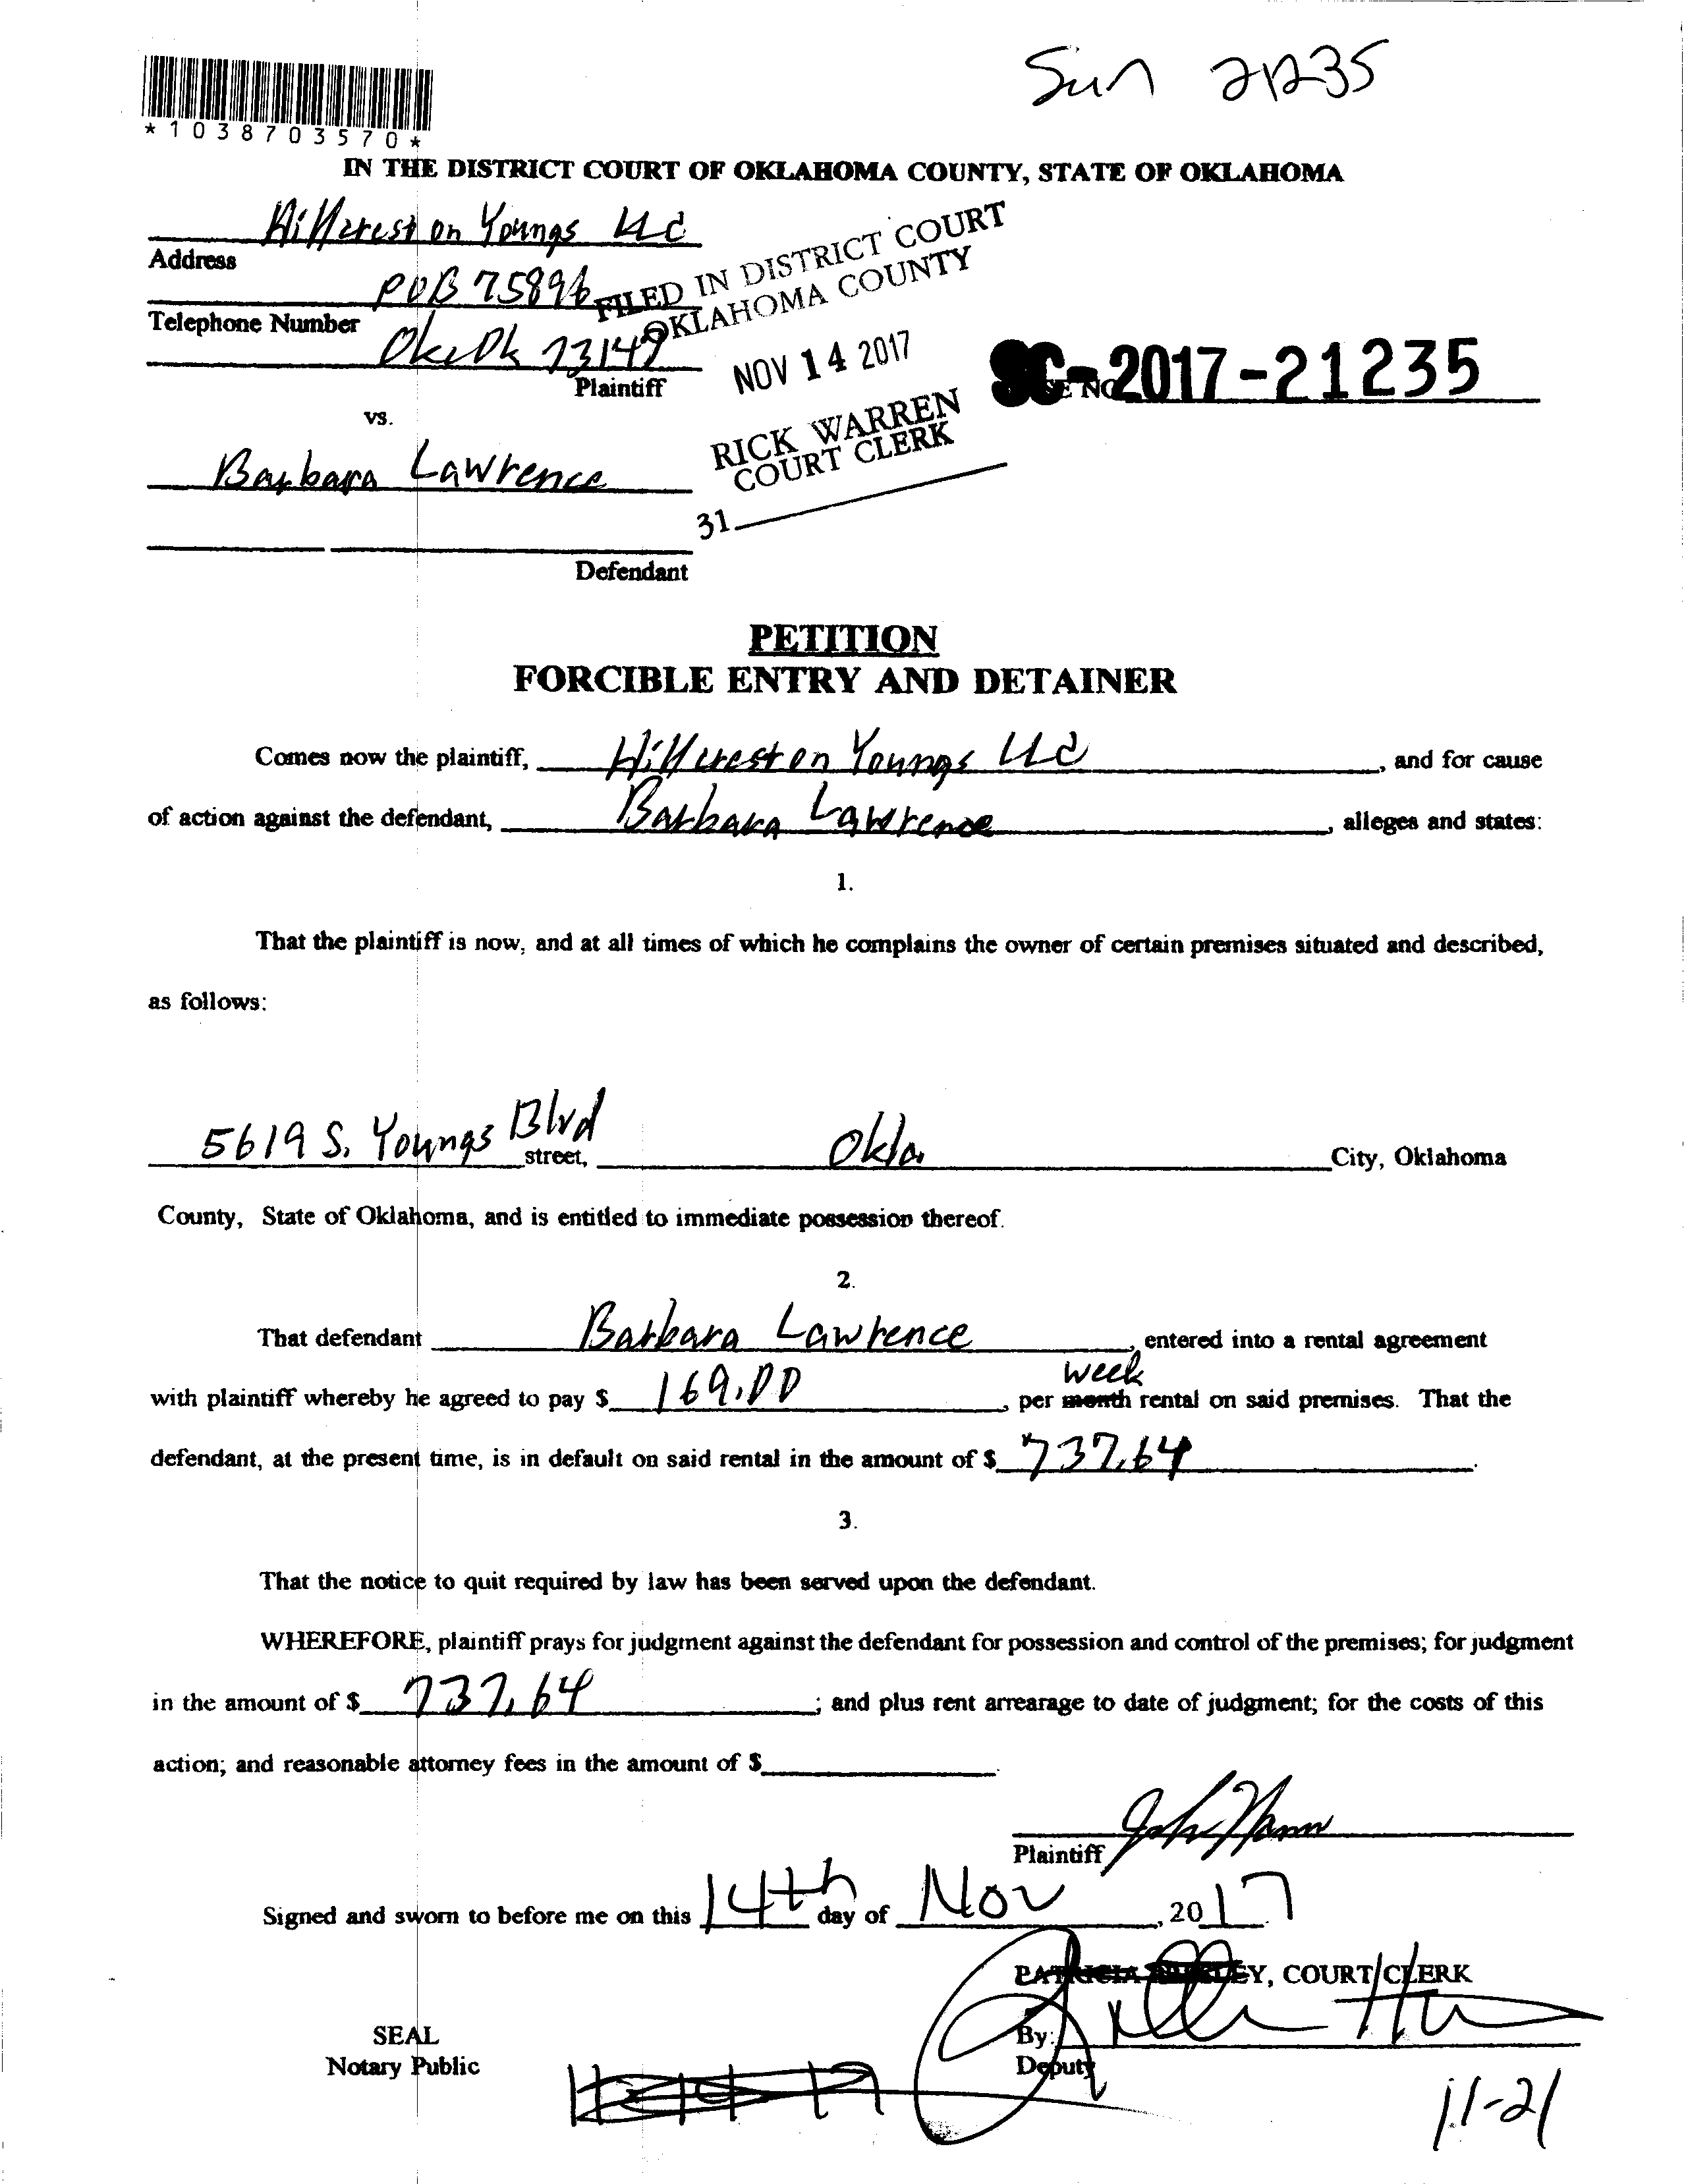 Sun 21235
*1038703570*
IN THE DISTRICT COURT OF OKLAHOMA COUNTY, STATE OF OKLAHOMA
Hillcrest on Youngs LLC
Address
POB 75896
Telephone Number
Okc Ok 73147
Plaintiff
FILED IN DISTRICT COURT
OKLAHOMA COUNTY
NOV 14 2017
RICK WARREN
COURT CLERK
31
SC-2017-21235
vs.
Barbara Lawrence
Defendant
PETITION
FORCIBLE ENTRY AND DETAINER
Comes now the plaintiff, Hillcrest on Youngs LLC, and for cause
of action against the defendant, Barbara Lawrence, alleges and states:
1.
That the plaintiff is now, and at all times of which he complains the owner of certain premises situated and described,
as follows:
5619 S. Youngs Blvd street, Okla. City, Oklahoma
County, State of Oklahoma, and is entitled to immediate possession thereof.
2.
That defendant Barbara Lawrence, entered into a rental agreement
week
with plaintiff whereby he agreed to pay $ 169.00, per month rental on said premises. That the
defendant, at the present time, is in default on said rental in the amount of $ 737.64.
3.
That the notice to quit required by law has been served upon the defendant.
WHEREFORE, plaintiff prays for judgment against the defendant for possession and control of the premises; for judgment
in the amount of $ 737.64; and plus rent arrearage to date of judgment; for the costs of this
action; and reasonable attorney fees in the amount of $
Plaintiff
Signed and sworn to before me on this 14th day of Nov, 2017
COURT CLERK
SEAL
By:
Notary Public
Deputy
11-21